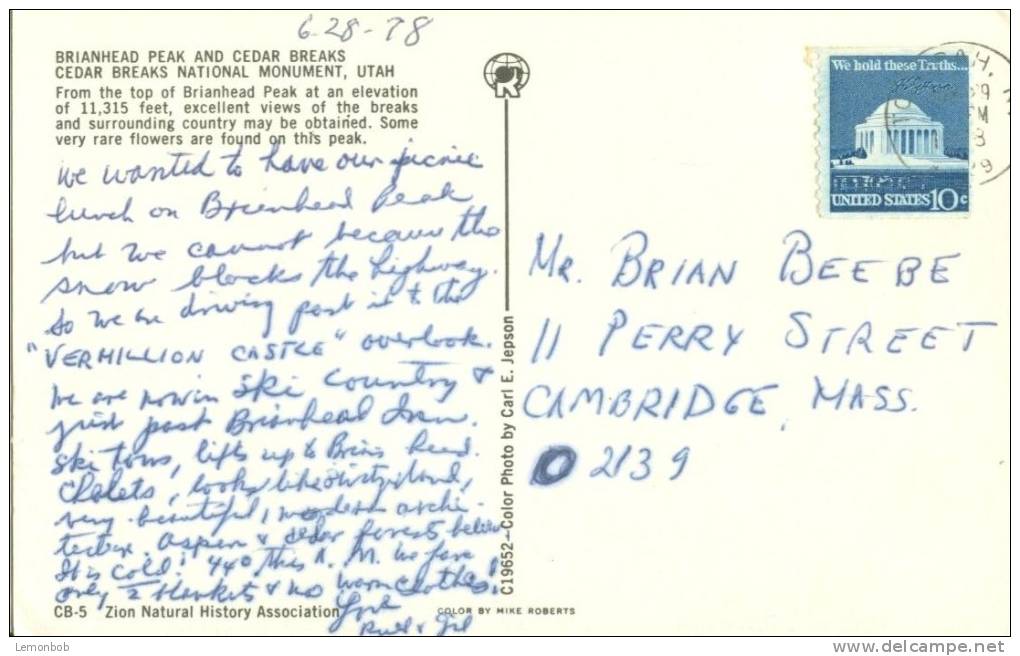 6-28-78
BRIANHEAD PEAK AND CEDAR BREAKS
CEDAR BREAKS NATIONAL MONUMENT, UTAH
From the top of Brianhead Peak at an elevation
of 11,315 feet, excellent views of the breaks
and surrounding country may be obtained. Some
very rare flowers are found on this peak.
We wanted to have our picnic
lunch on Brianhead Peak
but we cannot because the
snow blocks the highway.
So we are driving past it to the
"VERMILLION CASTLE" overlook.
We are now in Ski Country &
just past Brianhead
Ski tows, lifts up to Brian Head.
Chalets, looks like
very beautiful, modern archi-
tecture. Aspen & cedar forests below
It is cold! 44° this A.M. We have
only 2 blankets & no warm clothes!
Love
CB-5 Zion Natural History Association
C19652—Color Photo by Carl E. Jepson
COLOR BY MIKE ROBERTS
We hold these Truths...
UNITED STATES 10c
MR. BRIAN BEEBE
11 PERRY STREET
CAMBRIDGE, MASS.
02139
Lemonbob
delcampe.net